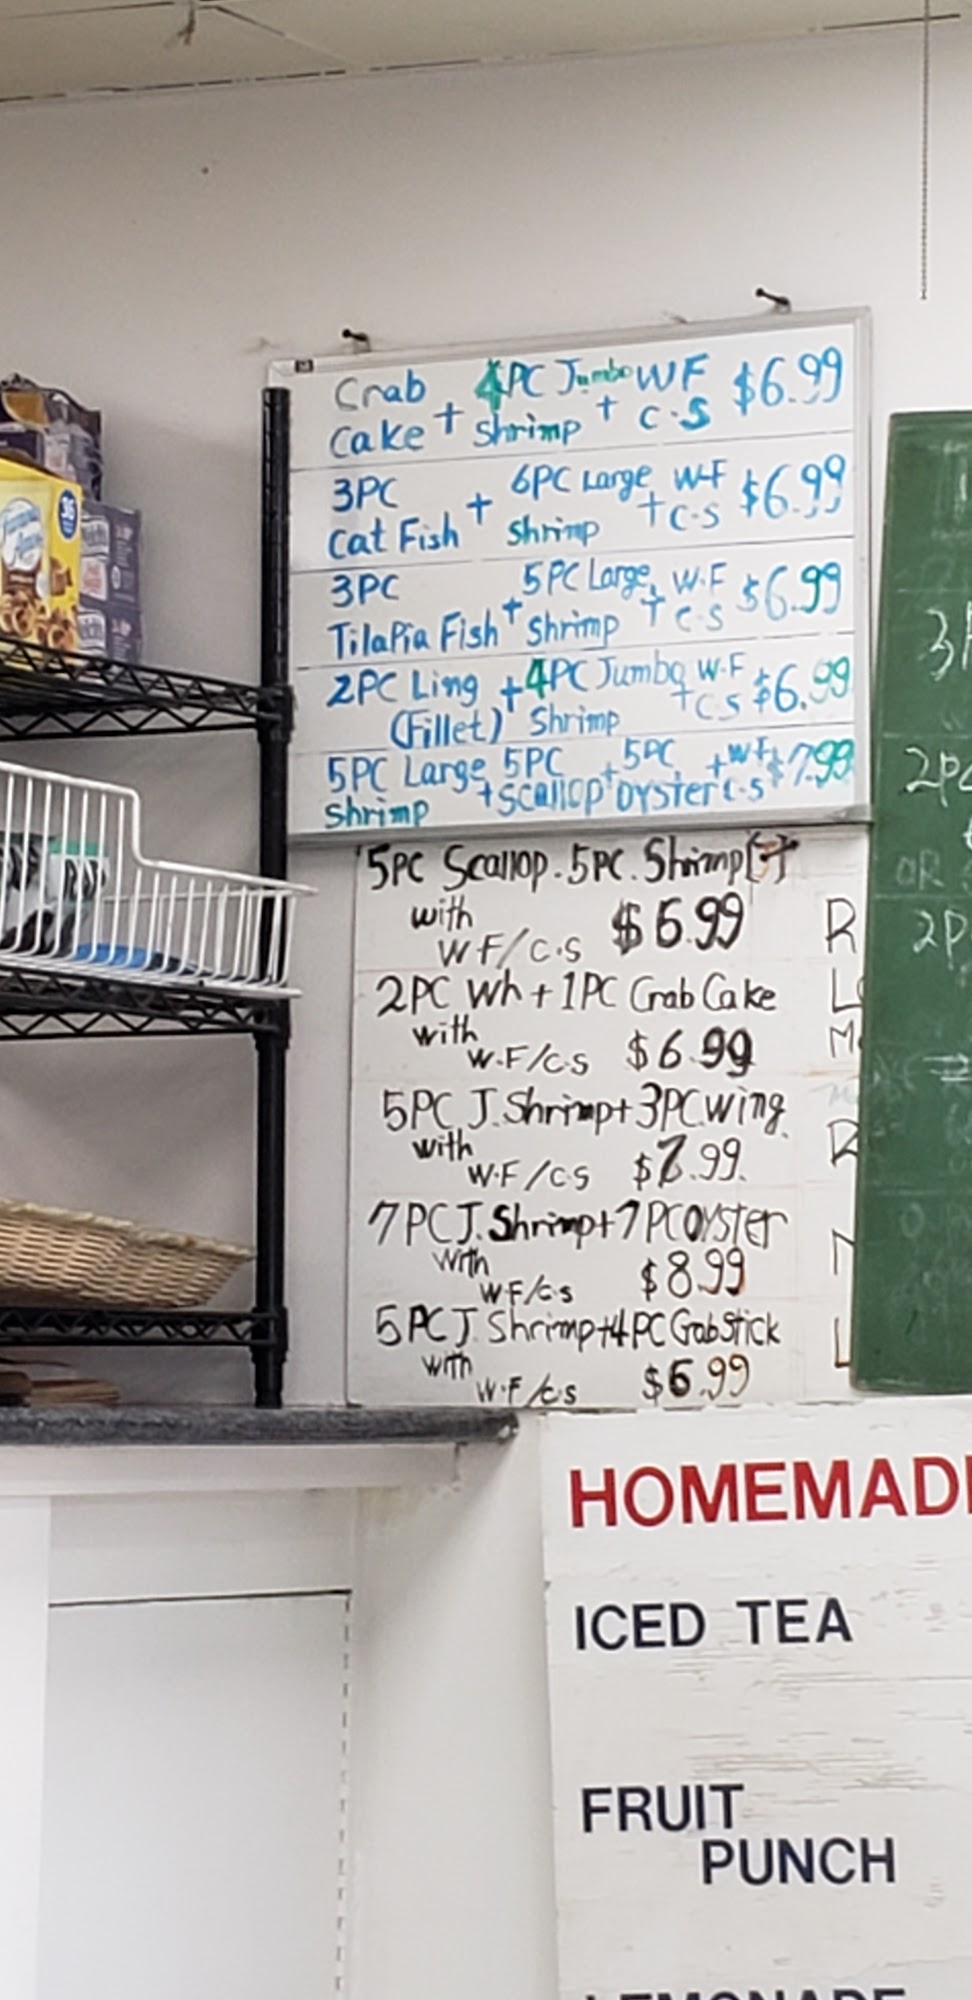 Crab 4PC Jumbo WF $6.99
Cake + Shrimp + C.S
3PC + 6PC Large W-F $6.99
Cat Fish Shrimp + C-S
3PC 5PC Large W-F $6.99
TilaPia Fish + Shrimp + C-S
2PC Ling + 4PC Jumbo W-F $6.99
(Fillet) Shrimp + C S
5PC Large 5PC + 5PC + WF $7.99
Shrimp + Scallop oyster C-S
5PC Scallop. 5PC. Shrimp
with
WF/C.S $6.99
2PC Wh + 1PC Crab Cake
with
W-F/C.S $6.99
5PC J. Shrimp + 3PC wing
with
W-F/C.S $7.99
7PC J. Shrimp + 7PC OYSTER
with
W-F/C.S $8.99
5PC J. Shrimp + 4PC Crab Stick
with
W-F/C.S $6.99
OR
HOMEMAD
ICED TEA
FRUIT
PUNCH
LEMONADE